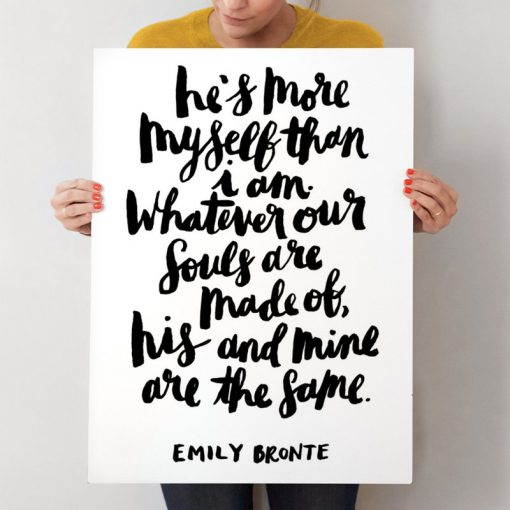 he's more
myself than
i am.
Whatever our
souls are
made of,
his and mine
are the same.
EMILY BRONTE